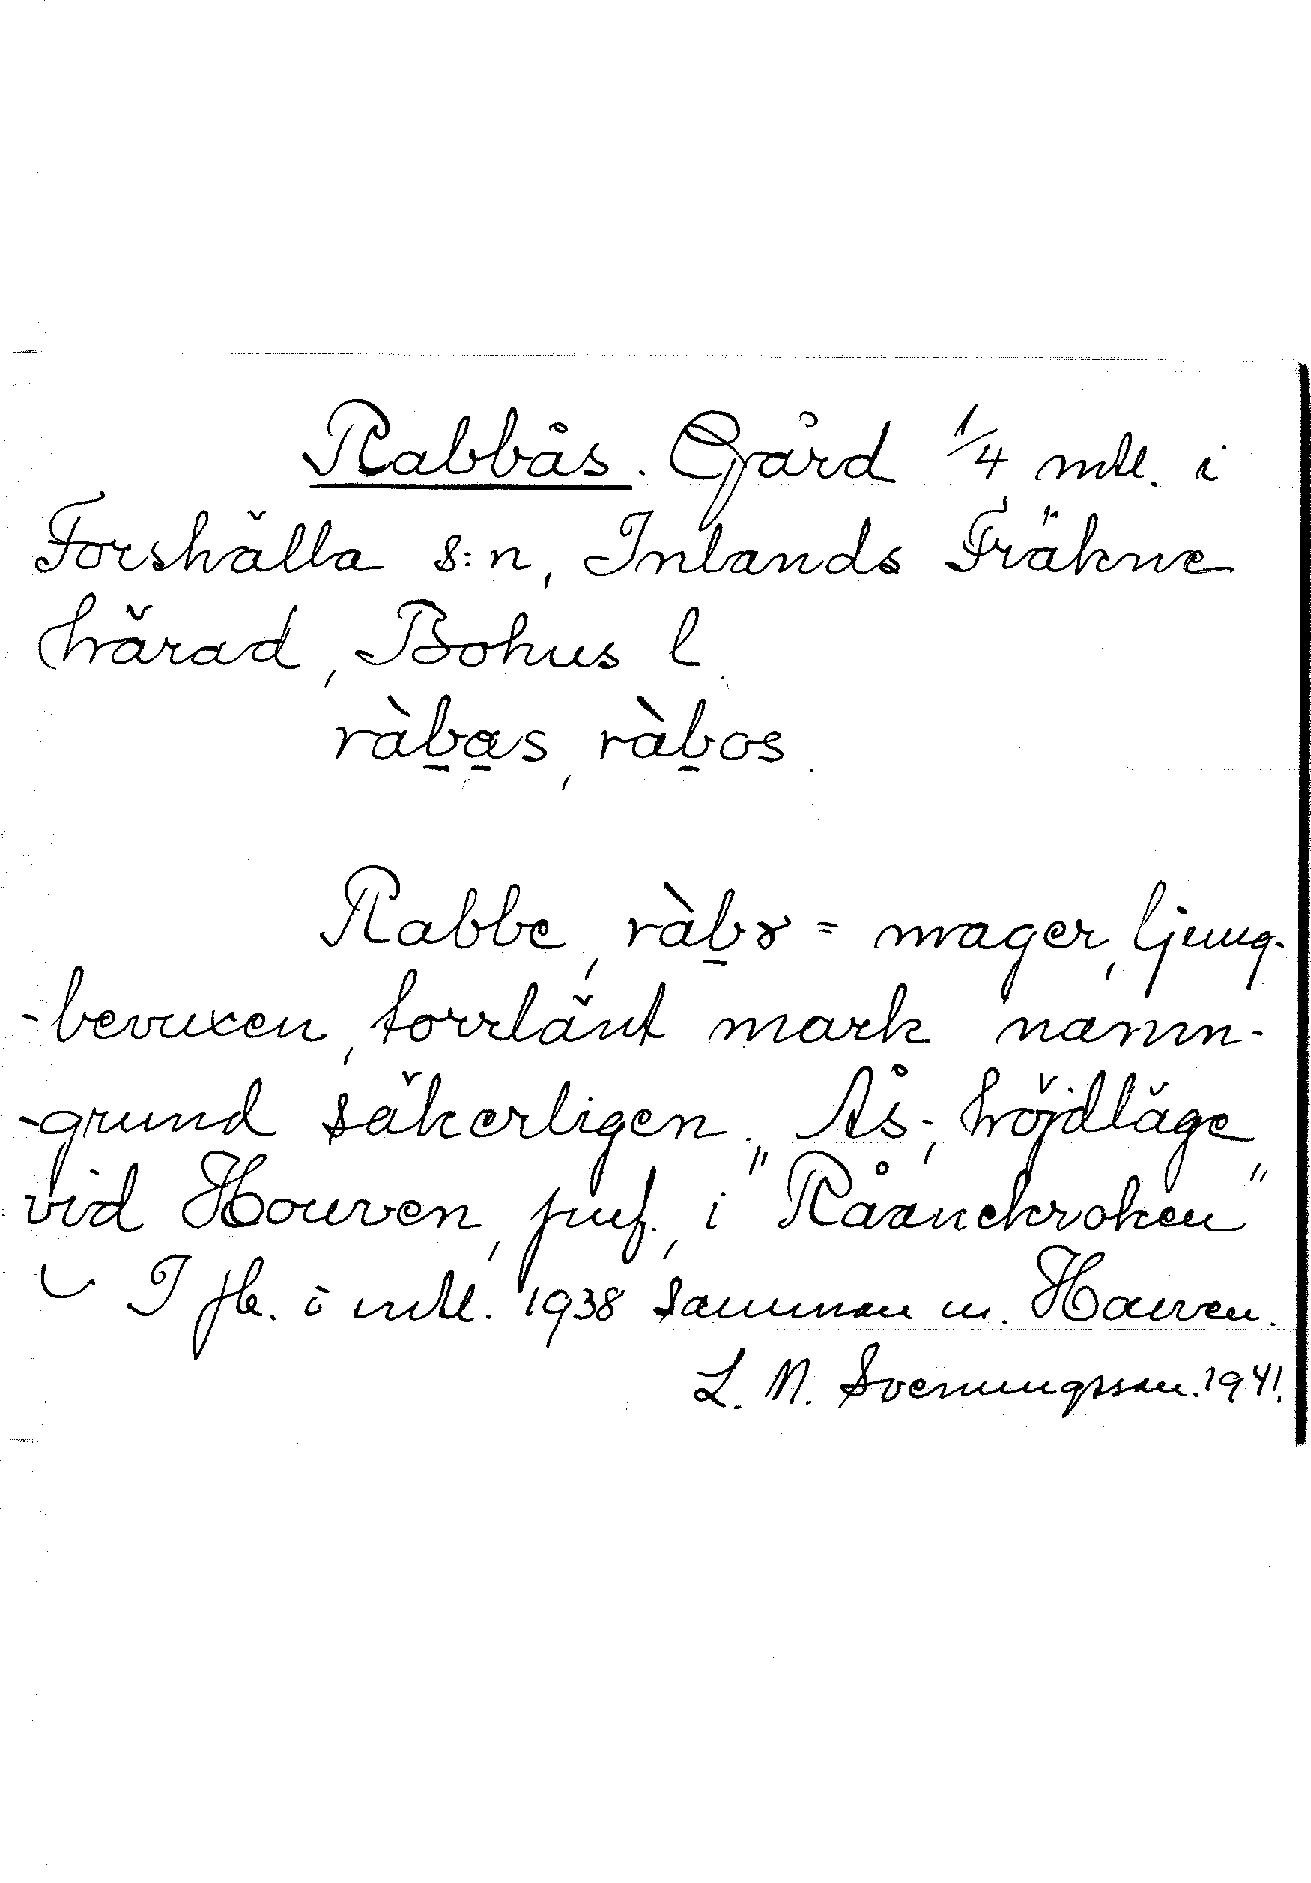 Rabbås. Gård 1/4 mtl. i
Forshälla s:n, Inlands Fräkne
härad, Bohus l.
ràb̲a̲s, ràb̲os.
Rabbe, ràb̲ɤ = mager, ljung-
-bevuxen, torrlänt mark namn-
-grund säkerligen. Ås-, höjdläge
vid Houven, i "Råanekroken"
I jb. i mtl. 1938 samman m. Houven.
L. N. Svenungsson. 1941.